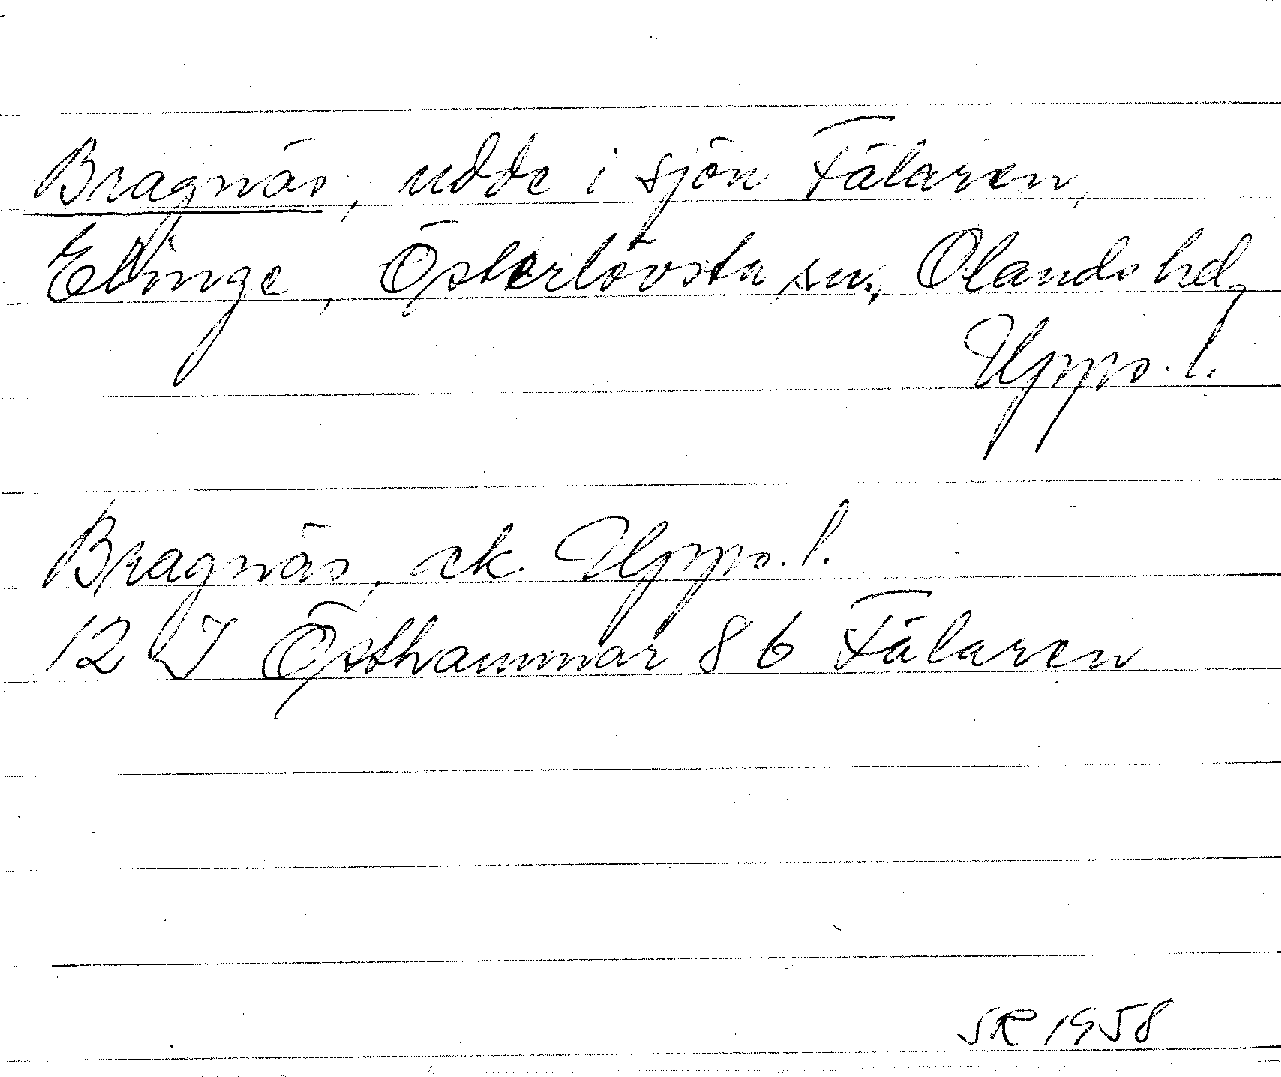 Bragnäs, udde i sjön Fälaren,
Elinge, Österlövsta sn, Olands hd,
Upps. l.
Bragnäs, ek. Upps. l.
12 I Östhammar 8 b Fälaren
SR 1958